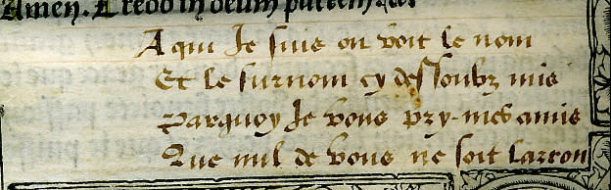 Amen. Credo in deum patrem
A qui Je suis on voit le nom
Et le surnom cy dessoubz mis
Parquoy Je vous pry mes amis
Que nul de vous ne soit larron